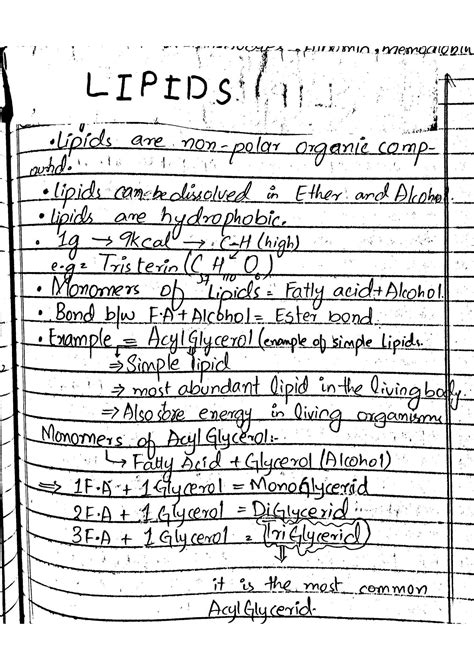 LIPIDS
• Lipids are non-polar organic comp-
ound.
• Lipids can be dissolved in Ether and Alcohol
• Lipids are hydrophobic.
• 1g → 9kcal → C-H (high)
e.g = Tristerin (C57 H110 O6)
• Monomers of Lipids = Fatty acid + Alcohol
• Bond b/w F.A + Alcohol = Ester bond.
• Example = Acyl Glycerol (example of simple Lipids.
⇒ Simple lipid
⇒ most abundant lipid in the living body
⇒ Also store energy in living organism
Monomers of Acyl Glycerol:-
↳ Fatty Acid + Glycerol (Alcohol)
⇒ 1F.A + 1 Glycerol = MonoGlycerid
2F.A + 1 Glycerol = DiGlycerid
3F.A + 1 Glycerol = TriGlycerid
⇓
it is the most common
Acyl Glycerid.